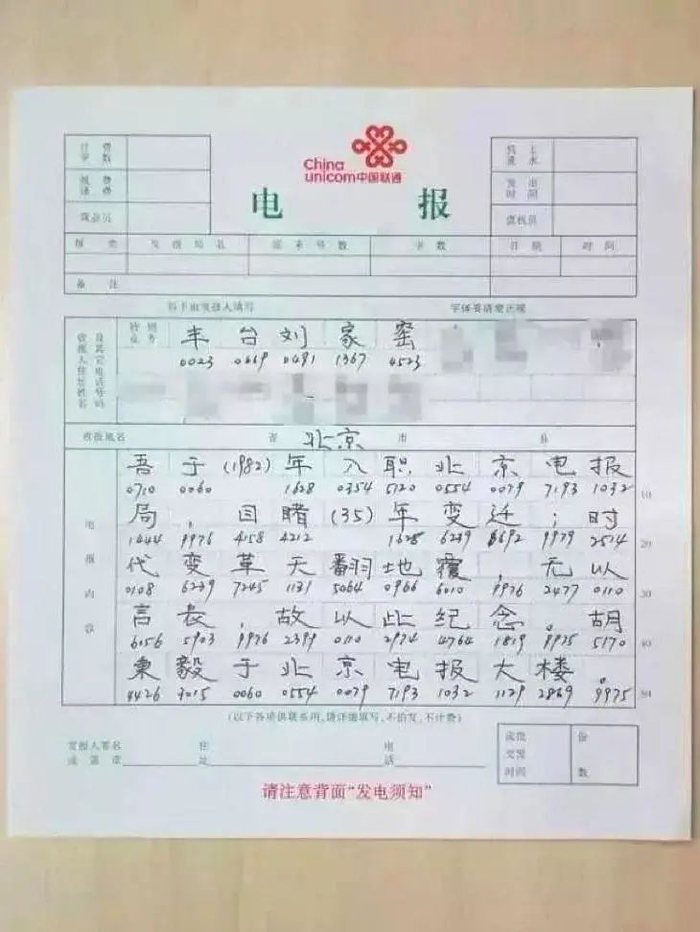 China
unicom中国联通
电 报
计费字数
线上流水
报费译费
发出时间
营业员
值机员
报类 发报局名 原来号数 字数 日期 时间
备注
以下由发报人填写 字体要清楚正规
收报人住址姓名及其它电话号码
特别业务
丰台刘家窑
0023 0669 0491 1367 4523
收报地名 省 北京 市 县
电报内容
吾于(1982)年入职北京电报
0710 0060 1628 0354 5120 0554 0079 7193 1032 10
局，目睹(35)年变迁；时
1444 9976 4158 4212 1628 6239 6692 9979 2514 20
代变革天翻地覆，无以
0108 6239 7245 1131 5064 0966 6010 9976 2477 0110 30
言表，故以此纪念。胡
6156 5903 9976 2399 0110 2974 4764 1819 9975 5170 40
秉毅于北京电报大楼。
4426 3015 0060 0554 0079 7193 1032 1129 2869 9975 50
(以下各项供联系用,请详细填写,不拍发,不计费)
发报人签名或盖章 住址 电话
成批交完时间 份数
请注意背面“发电须知”